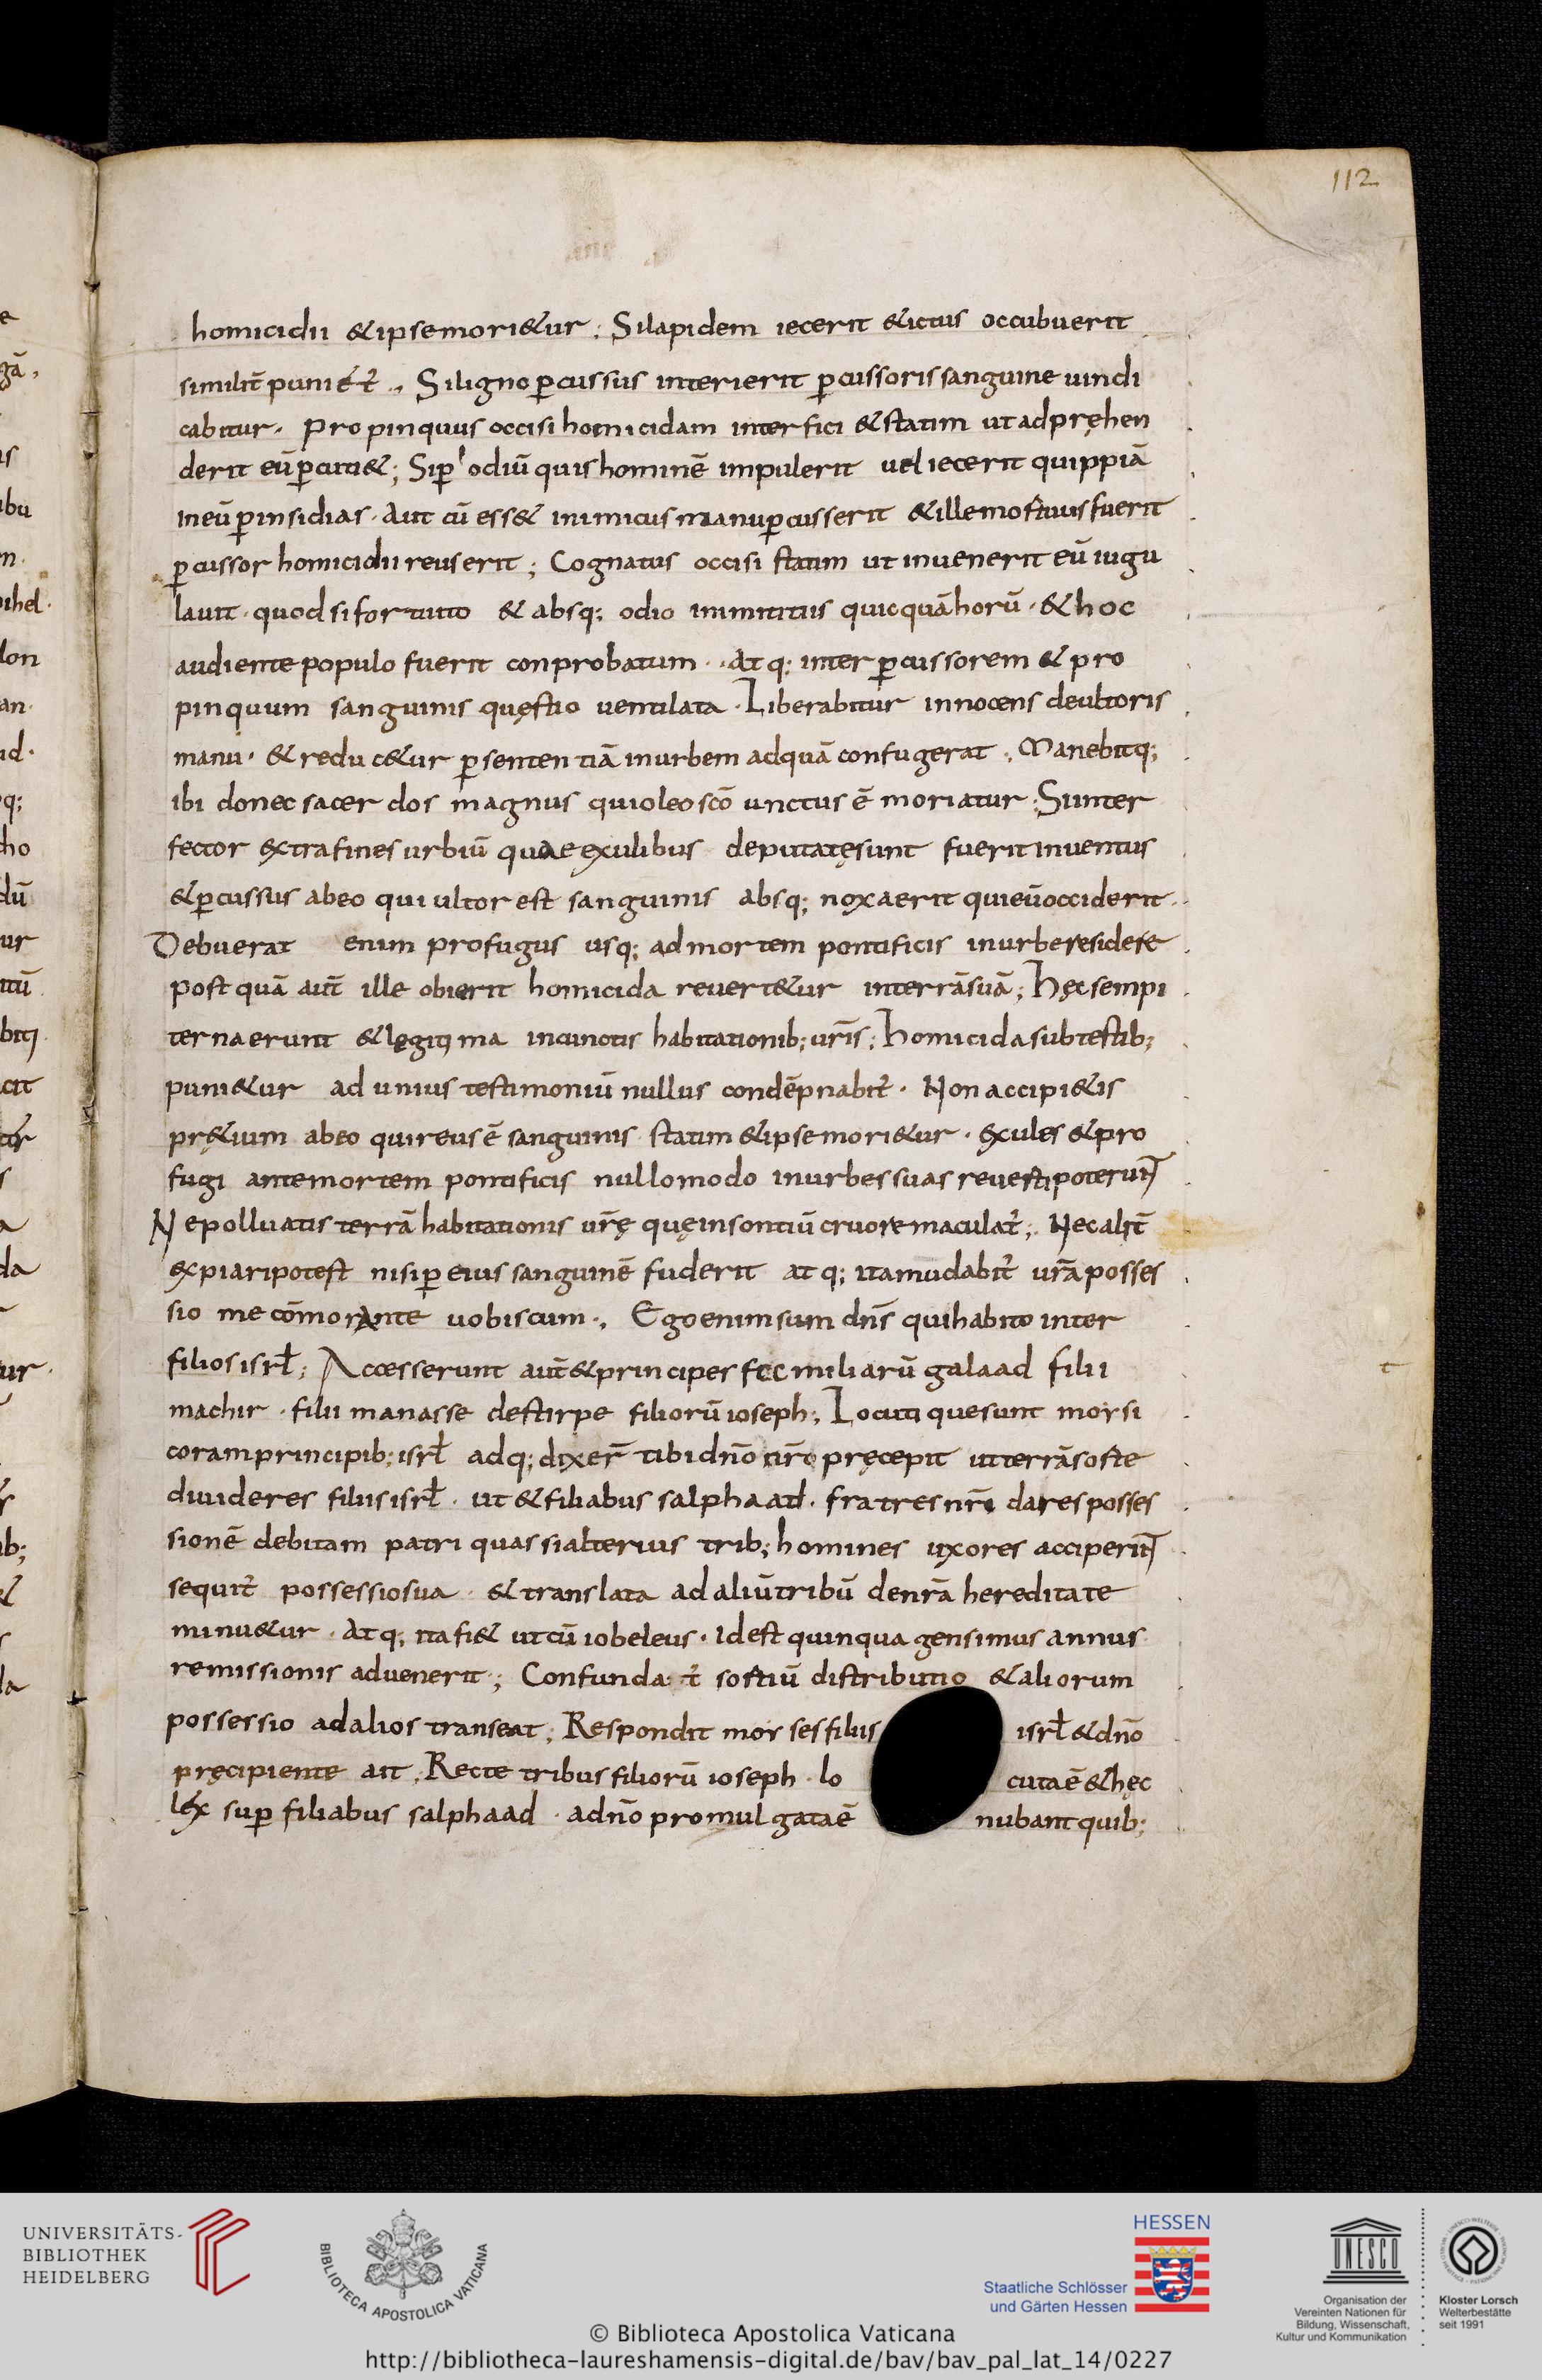 112
homicidii & ipse mori&ur ; Si lapidem iecerit & ictus occubuerit
similit̄ puniét᷑ ., Si ligno ꝑcussus interierit ꝑcussoris sanguine uindi
cabitur . Propinquus occisi homicidam interfici & statim ut adpręhen
derit eū ꝑcuti& ; Si ꝑ odiū quis hominē impulerit uel iecerit quippiā
in eū ꝑ insidias . Aut cū ess& inimicus manu ꝑcusserit & ille mortuus fuerit
ꝑcussor homicidii reus erit ; Cognatus occisi statim ut inuenerit eū iugu
lauit . quod si fortuito & absq; odio inimititiis quicquā horū . & hoc
audiente populo fuerit conprobatum . . Atq; inter ꝑcussorem & pro
pinquum sanguinis quęstio uentilata . Liberabitur innocens de ultoris
manu . & reduc&ur ꝑ sententiā in urbem ad quā confugerat ; Manebitq;
ibi donec sacerdos magnus qui oleo scō unctus ē moriatur ; Si inter
fector extra fines urbiū quae exulibus deputatę sunt fuerit inuentus
& ꝑcussus ab eo qui ultor est sanguinis absq; noxa erit qui eū occiderit .
Debuerat enim profugus usq; ad mortem pontificis in urbe residere
postquā aut̄ ille obierit homicida reuert&ur in terrā suā ; hęc sempi
terna erunt & legitima in cunctis habitationib; ur̄is ; homicida sub testib;
puni&ur ad unius testimoniū nullus condēpnabit᷑ . Non accipi&is
pr&ium ab eo qui reus ē sanguinis . statim & ipse mori&ur . exules & pro
fugi ante mortem pontificis nullo modo in urbes suas reuerti poterunt̄
Ne polluatis terrā habitationis ur̄ę quę insontiū cruore maculat᷑ ; Nec alit̄
expiari potest nisi ꝑ eius sanguinē fuderit atq; ita mūdabit᷑ ur̄a posses
sio me cōmorante uobiscum ., Ego enim sum dn̄s qui habito inter
filios isrł ; Accesserunt aut̄ & principes fcc miliarū galaad filii
machir . filii manasse de stirpe filiorū ioseph ; Locuti que sunt morsi
coram principib; isrł adq; dixer̄ tibi dn̄o nr̄o pręcepit ut terrā sorte
diuideres filiis isrł . ut & filiabus salphaad . fratres nr̄i dares posses
sionē debitam patri quas si alterius trib; homines uxores acciperint̄
sequit᷑ possessio sua . & translata ad aliū tribū de nr̄a hereditate
minu&ur . Atq; ita fi& ut cū iobeleus . id est quinquagensimus annus
remissionis aduenerit ; Confundat᷑ sortiū distributio & aliorum
possessio ad alios transeat ; Respondit morses filiis isrł & dn̄o
pręcipiente ait ; Recte tribus filiorū ioseph . locuta ē & hęc
lex sup̱ filiabus salphaad . a dn̄o promulgata ē nubant quib;
UNIVERSITÄTS-
BIBLIOTHEK
HEIDELBERG
BIBLIOTECA APOSTOLICA VATICANA
HESSEN
Staatliche Schlösser
und Gärten Hessen
UNESCO
Organisation der
Vereinten Nationen für
Bildung, Wissenschaft,
Kultur und Kommunikation
Kloster Lorsch
Welterbestätte
seit 1991
© Biblioteca Apostolica Vaticana
http://bibliotheca-laureshamensis-digital.de/bav/bav_pal_lat_14/0227